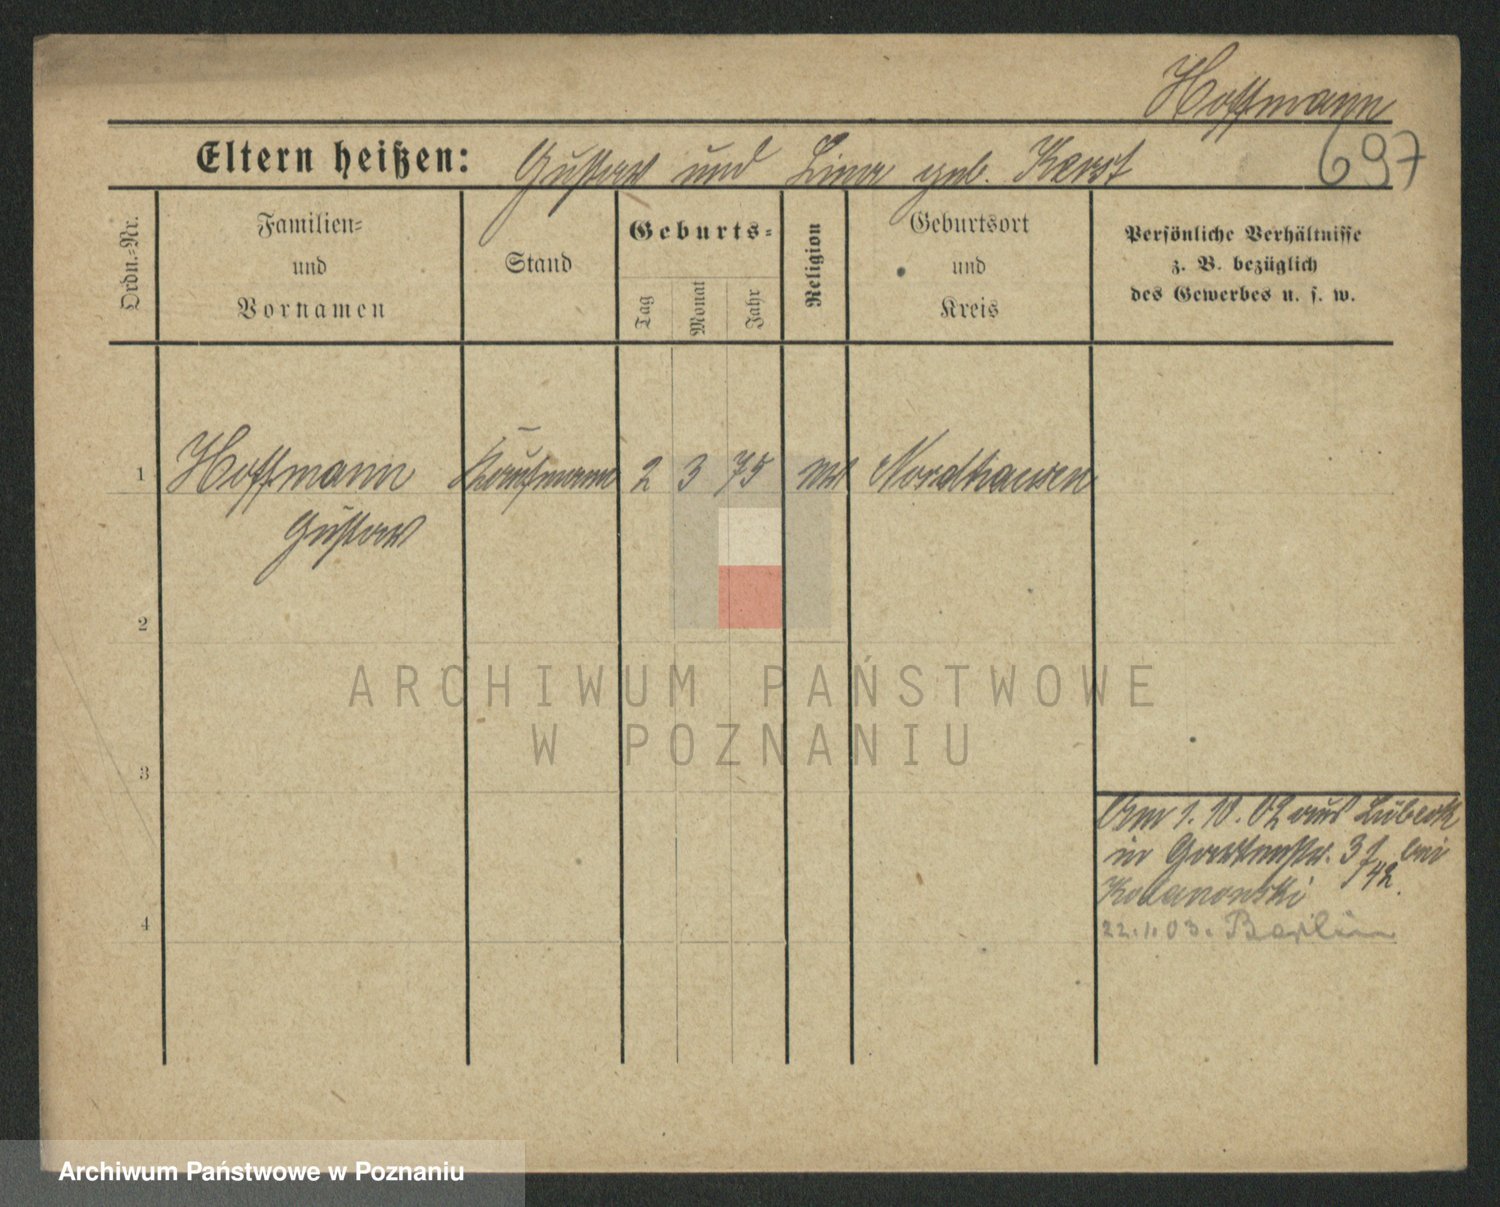 Hoffmann
697
Eltern heißen: Gustav und Lina geb. Karst
Ordn.=Nr.
Familien=
und
Vornamen
Stand
Geburts=
Tag
Monat
Jahr
Religion
Geburtsort
und
Kreis
Persönliche Verhältnisse
z. B. bezüglich
des Gewerbes u. s. w.
1 Hoffmann Kaufmann 2 3 75 Nordhausen
Gustav
2
ARCHIWUM PAŃSTWOWE
W POZNANIU
3
Am 1.10.02 aus Lübeck
in Gartenstr. 31 bei
Kolanowski 42.
4
22.1.03. Berlin
Archiwum Państwowe w Poznaniu